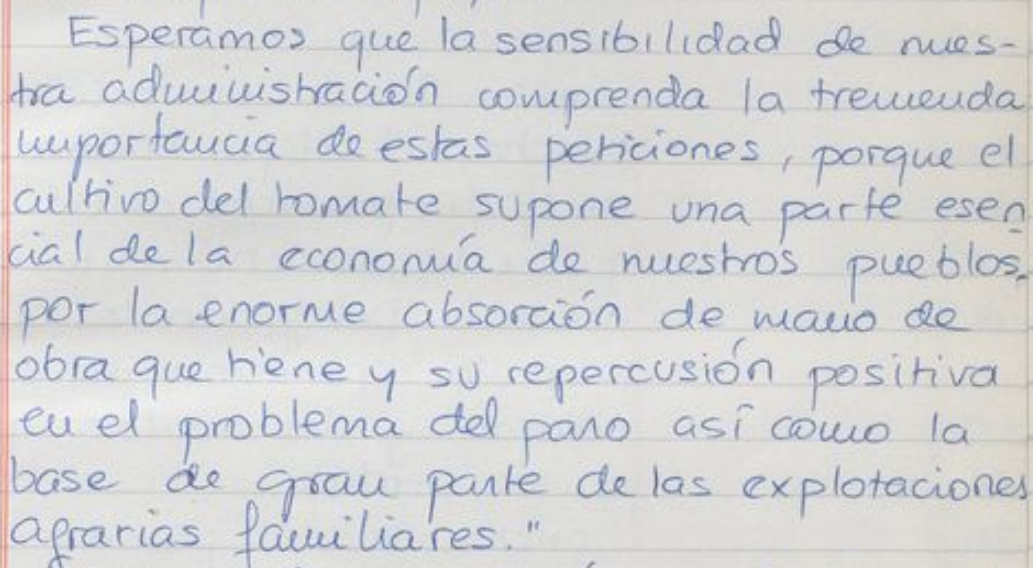 Esperamos que la sensibilidad de nues-
tra administración comprenda la tremenda
importancia de estas peticiones, porque el
cultivo del tomate supone una parte esen
cial de la economía de nuestros pueblos,
por la enorme absorción de mano de
obra que tiene y su repercusión positiva
en el problema del paro así como la
base de gran parte de las explotaciones
agrarias familiares."